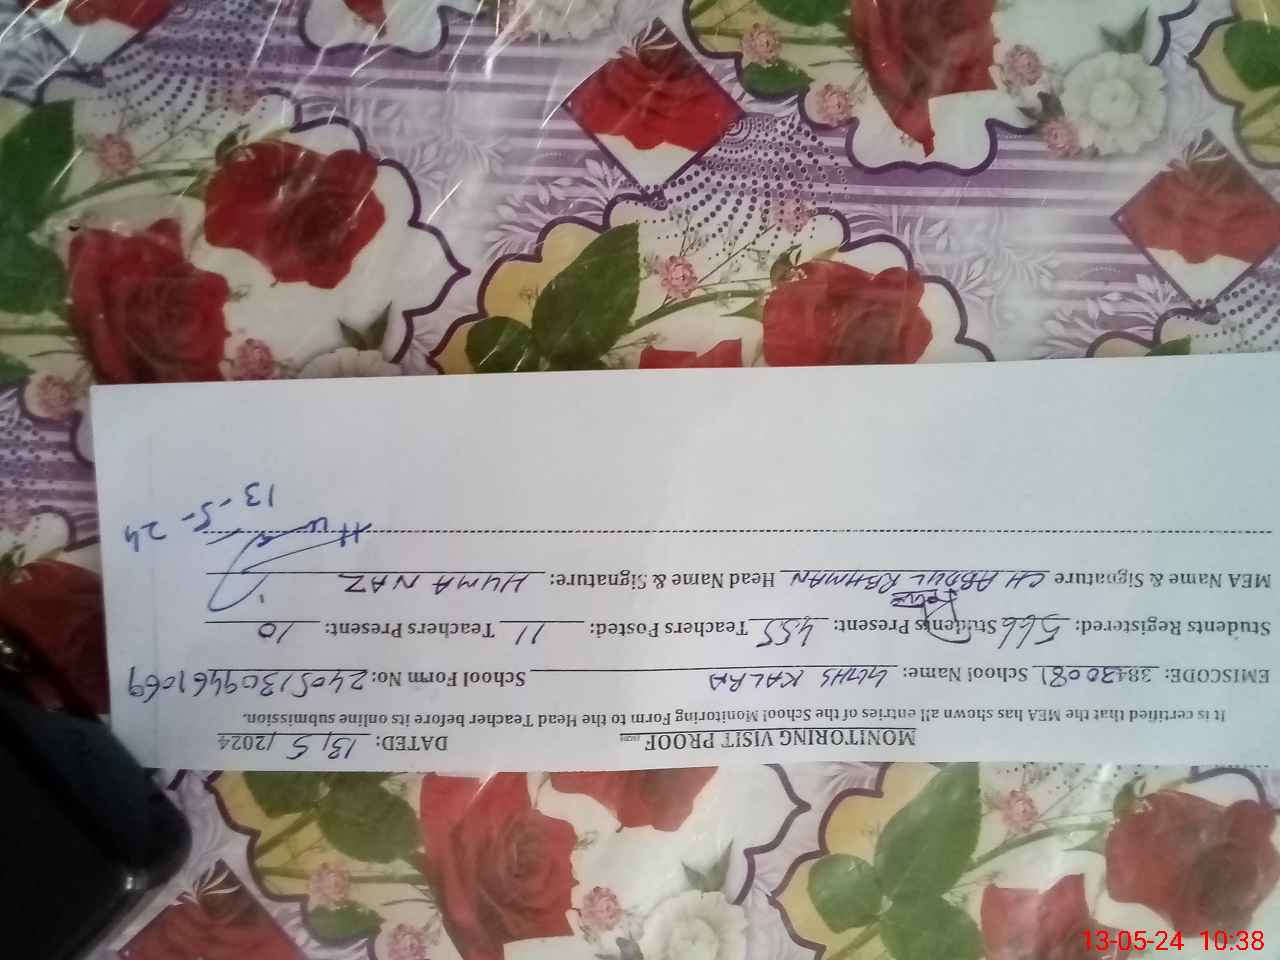 MONITORING VISIT PROOF DATED: 13/5/2024
It is certified that the MEA has shown all entries of the School Monitoring Form to the Head Teacher before its online submission.
EMISCODE: 38430081 School Name: GGHS KALRA School Form No: 240513094461069
Students Registered: 566 Students Present: 455 Teachers Posted: 11 Teachers Present: 10
MEA Name & Signature CH ABDUL REHMAN Head Name & Signature: HUMA NAZ
13-5-24
13-05-24 10:38